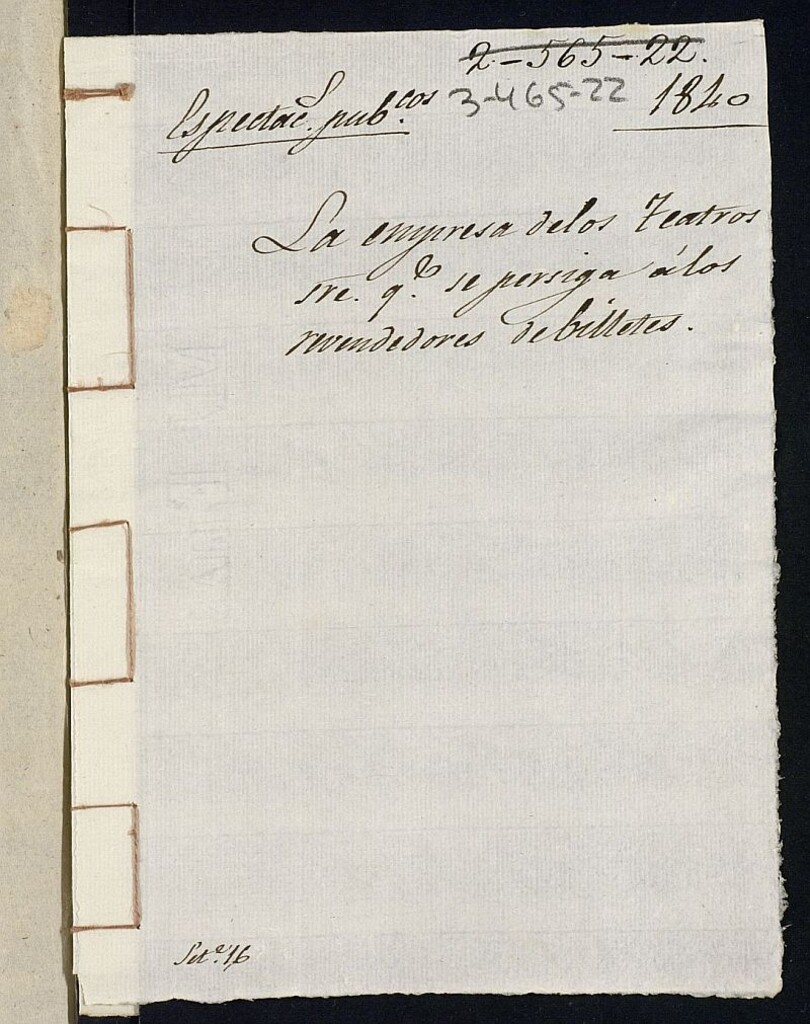 2-565-22.
Espectac.s pub.cos 3-465-22 1840
La empresa delos Teatros
sre. q.e se persiga álos
revendedores de billetes.
Set.e 16